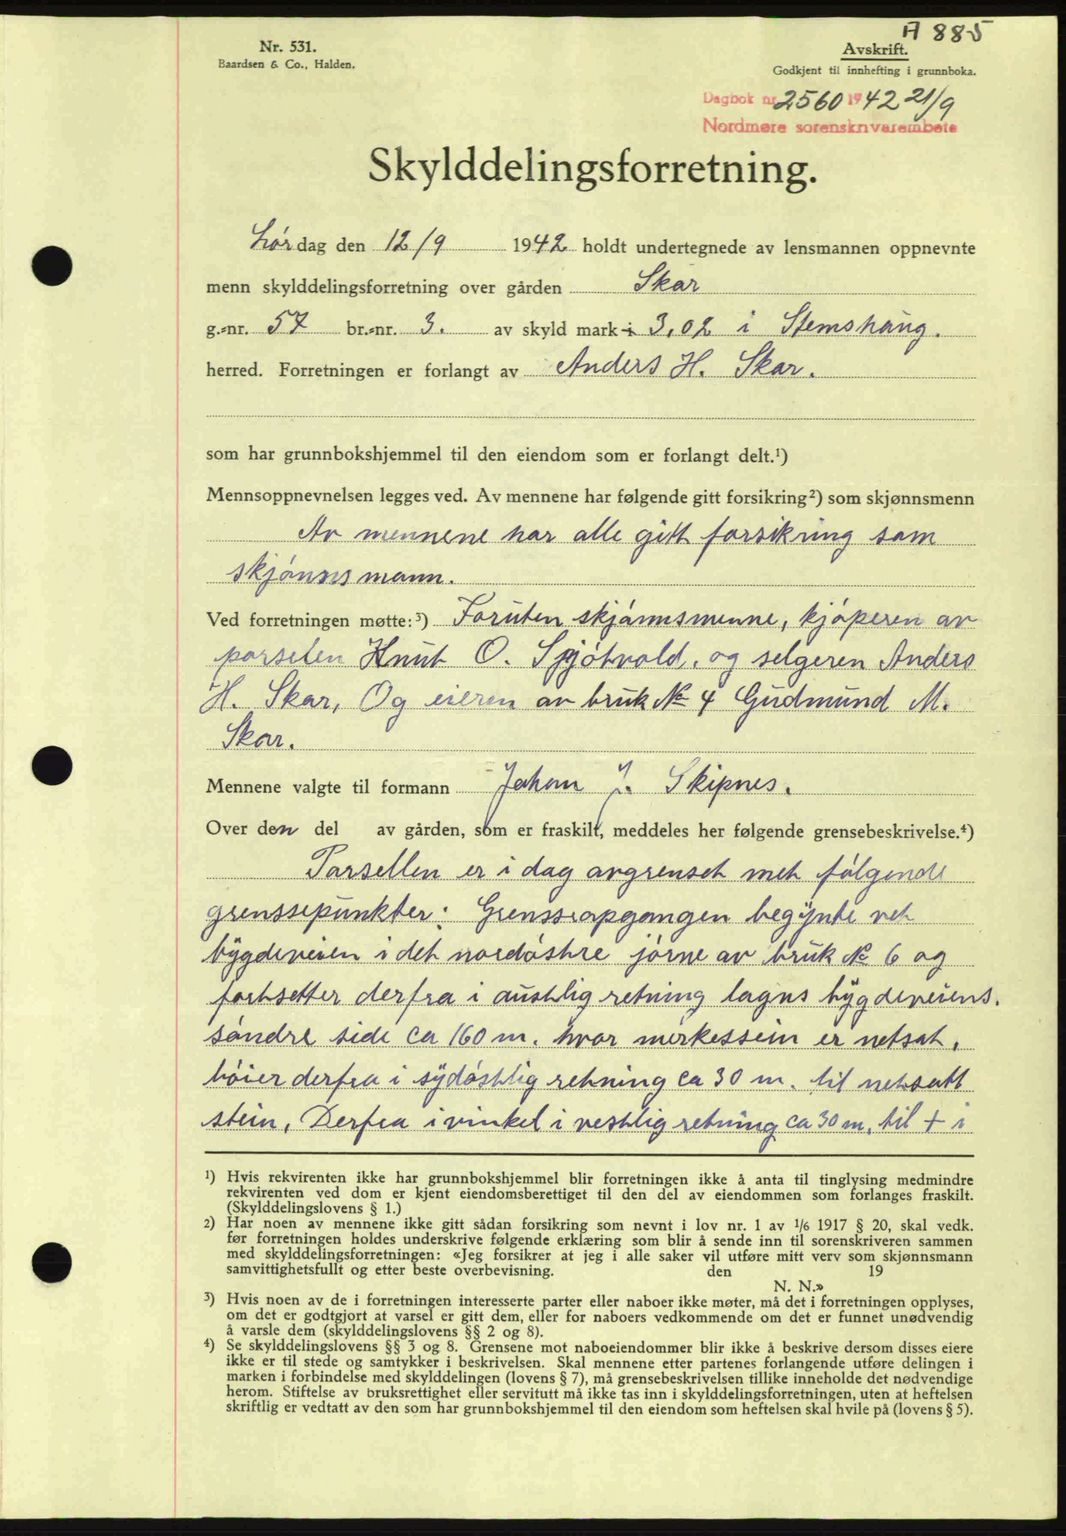 A 885
Nr. 531.
Baardsen & Co., Halden.
Avskrift.
Godkjent til innhefting i grunnboka.
Dagbok nr. 2560 1942 21/9
Nordmøre sorenskriverembete
Skylddelingsforretning.
Lørdag den 12/9 1942 holdt undertegnede av lensmannen oppnevnte
menn skylddelingsforretning over gården Skar
g.-nr. 57 br.-nr. 3. av skyld mark i 3,02 i Stemshaug.
herred. Forretningen er forlangt av Anders H. Skar.
som har grunnbokshjemmel til den eiendom som er forlangt delt.¹)
Mennsoppnevnelsen legges ved. Av mennene har følgende gitt forsikring²) som skjønnsmenn
Av mennene har alle gitt forsikring som
skjønnsmann.
Ved forretningen møtte:³) Foruten skjønnsmenne, kjøperen av
parselen Knut O. Spjøtvold, og selgeren Anders
H. Skar, Og eieren av bruk № 4 Gudmund M.
Skar.
Mennene valgte til formann Johan J. Skipnes.
Over den del av gården, som er fraskilt, meddeles her følgende grensebeskrivelse.⁴)
Parsellen er i dag avgrenset met følgende
grenssepunkter: Grenssopgangen begynte vet
bygdeveien i det nordøstre jørne av bruk № 6 og
fortsetter derfra i austlig retning lagns bygdeveiens.
søndre side ca 160 m. hvor merkessein er netsat,
bøier derfra i sydøstlig retning ca 30 m. til netsatt
stein, Derfra i vinkel i vestlig retning ca 30 m, til + i
¹) Hvis rekvirenten ikke har grunnbokshjemmel blir forretningen ikke å anta til tinglysing medmindre
rekvirenten ved dom er kjent eiendomsberettiget til den del av eiendommen som forlanges fraskilt.
(Skylddelingslovens § 1.)
²) Har noen av mennene ikke gitt sådan forsikring som nevnt i lov nr. 1 av 1/6 1917 § 20, skal vedk.
før forretningen holdes underskrive følgende erklæring som blir å sende inn til sorenskriveren sammen
med skylddelingsforretningen: «Jeg forsikrer at jeg i alle saker vil utføre mitt verv som skjønnsmann
samvittighetsfullt og etter beste overbevisning. den 19
N. N.»
³) Hvis noen av de i forretningen interesserte parter eller naboer ikke møter, må det i forretningen opplyses,
om det er godtgjort at varsel er gitt dem, eller for naboers vedkommende om det er funnet unødvendig
å varsle dem (skylddelingslovens §§ 2 og 8).
⁴) Se skylddelingslovens §§ 3 og 8. Grensene mot naboeiendommer blir ikke å beskrive dersom disses eiere
ikke er til stede og samtykker i beskrivelsen. Skal mennene etter partenes forlangende utføre delingen i
marken i forbindelse med skylddelingen (lovens § 7), må grensebeskrivelsen tillike inneholde det nødvendige
herom. Stiftelse av bruksrettighet eller servitutt må ikke tas inn i skylddelingsforretningen, uten at heftelsen
skriftlig er vedtatt av den som har grunnbokshjemmel til den eiendom som heftelsen skal hvile på (lovens § 5).